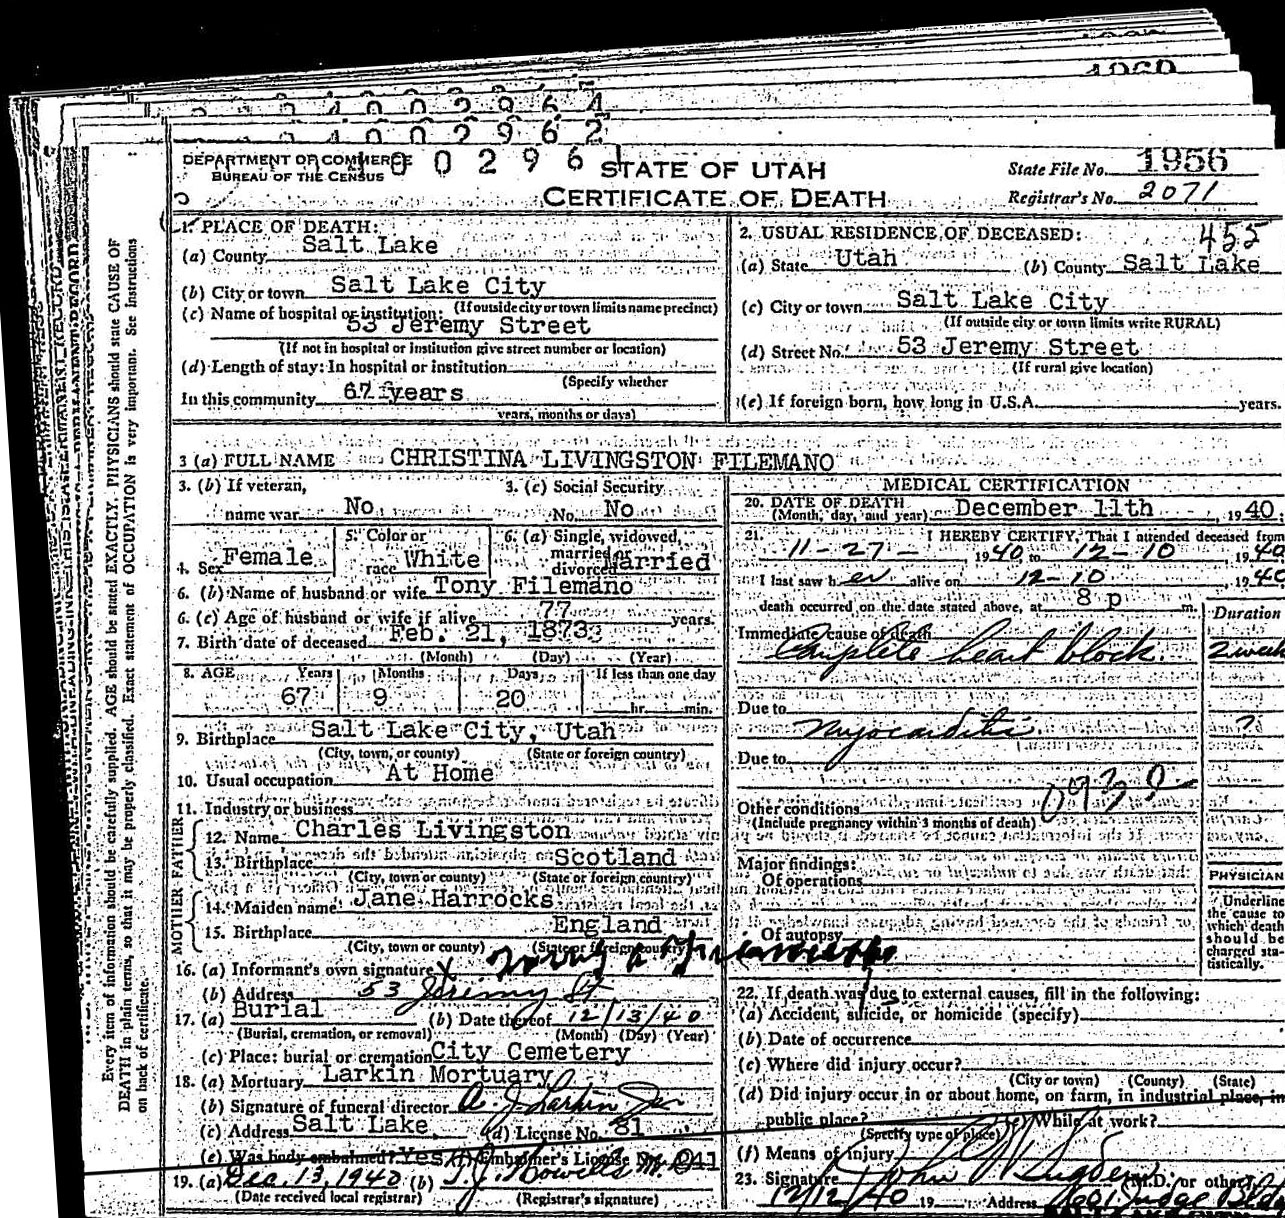 1960
4002964
4002962
DEPARTMENT OF COMMERCE
BUREAU OF THE CENSUS
4002961
STATE OF UTAH
CERTIFICATE OF DEATH
State File No. 1956
Registrar's No. 2071
Every item of information should be carefully supplied. AGE should be stated EXACTLY. PHYSICIANS should state CAUSE OF
DEATH in plain terms, so that it may be properly classified. Exact statement of OCCUPATION is very important. See Instructions
on back of certificate.
1. PLACE OF DEATH:
(a) County Salt Lake
(b) City or town Salt Lake City
(If outside city or town limits name precinct)
(c) Name of hospital or institution:
53 Jeremy Street
(If not in hospital or institution give street number or location)
(d) Length of stay: In hospital or institution
(Specify whether
In this community 67 years
years, months or days)
2. USUAL RESIDENCE OF DECEASED: 455
(a) State Utah (b) County Salt Lake
(c) City or town Salt Lake City
(If outside city or town limits write RURAL)
(d) Street No. 53 Jeremy Street
(If rural give location)
(e) If foreign born, how long in U.S.A. years.
3 (a) FULL NAME CHRISTINA LIVINGSTON FILEMANO
3. (b) If veteran,
name war No
3. (c) Social Security
No. No
4. Sex Female
5. Color or
race White
6. (a) Single, widowed,
married or
divorced Married
6. (b) Name of husband or wife Tony Filemano
6. (c) Age of husband or wife if alive 77 years.
7. Birth date of deceased Feb. 21, 1873
(Month) (Day) (Year)
8. AGE Years Months Days If less than one day
67 9 20 hr. min.
9. Birthplace Salt Lake City, Utah
(City, town, or county) (State or foreign country)
10. Usual occupation At Home
11. Industry or business
FATHER
12. Name Charles Livingston
13. Birthplace Scotland
(City, town or county) (State or foreign country)
MOTHER
14. Maiden name Jane Harrocks
15. Birthplace England
(City, town or county) (State or foreign country)
16. (a) Informant's own signature X
(b) Address 53 Jeremy St
17. (a) Burial (b) Date thereof 12/13/40
(Burial, cremation, or removal) (Month) (Day) (Year)
(c) Place: burial or cremation City Cemetery
18. (a) Mortuary Larkin Mortuary
(b) Signature of funeral director A. J. Larkin Jr
(c) Address Salt Lake (d) License No. 81
(e) Was body embalmed? Yes (f) Embalmer's License No. 041
19. (a) Dec. 13, 1940 (b)
(Date received local registrar) (Registrar's signature)
MEDICAL CERTIFICATION
20. DATE OF DEATH
(Month, day, and year) December 11th, 1940
21. I HEREBY CERTIFY, That I attended deceased from
11-27- 1940 to 12-10 1940
I last saw her alive on 12-10 1940
death occurred on the date stated above, at 8 p m.
Duration
Immediate cause of death
Complete heart block. 2 week
Due to
Myocarditis. ?
Due to
Other conditions
(Include pregnancy within 3 months of death)
Major findings:
Of operations
Of autopsy
PHYSICIAN
Underline
the cause to
which death
should be
charged sta-
tistically.
22. If death was due to external causes, fill in the following:
(a) Accident, suicide, or homicide (specify)
(b) Date of occurrence
(c) Where did injury occur?
(City or town) (County) (State)
(d) Did injury occur in or about home, on farm, in industrial place, in
public place? (e) While at work?
(Specify type of place)
(f) Means of injury
23. Signature John Sugden (M.D. or other)
12/12/40 19 Address 601 Judge Bld